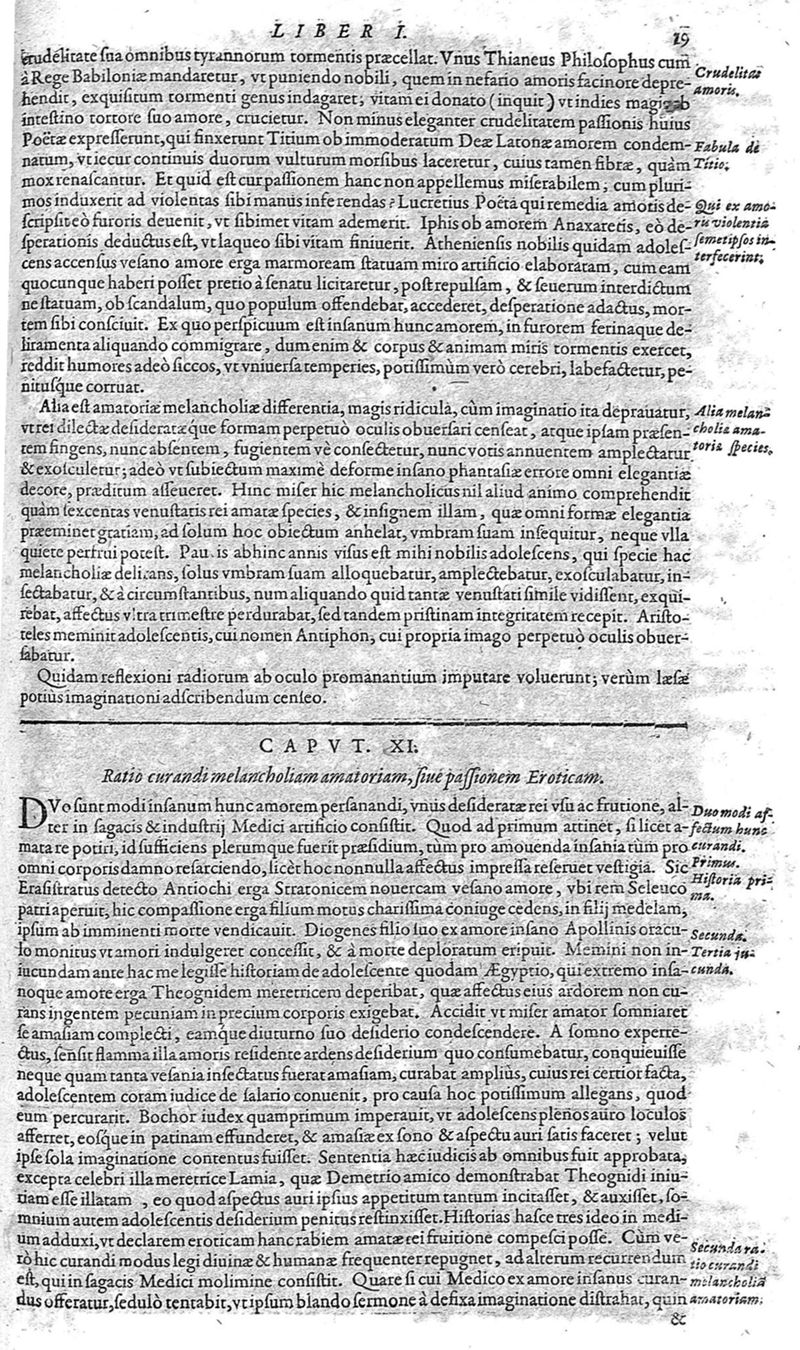 LIBER I.
19
crudelitate sua omnibus tyrannorum tormentis præcellat. Vnus Thianeus Philosophus cum
à Rege Babiloniæ mandaretur, vt puniendo nobili, quem in nefario amoris facinore depre-
hendit, exquisitum tormenti genus indagaret; vitam ei donato (inquit) vt indies magis ab
intestino tortore suo amore, crucietur. Non minus eleganter crudelitatem passionis huius
Poëtæ expresserunt, qui finxerunt Titium ob immoderatum Deæ Latonæ amorem condem-
natum, vt iecur continuis duorum vulturum morsibus laceretur, cuius tamen fibræ, quàm
mox renascantur. Et quid est cur passionem hanc non appellemus miserabilem; cum pluri-
mos induxerit ad violentas sibi manus inferendas? Lucretius Poëta qui remedia amoris de-
scripsit eò furoris deuenit, vt sibimet vitam ademerit. Iphis ob amorem Anaxaretis, eò de-
sperationis deductus est, vt laqueo sibi vitam finiuerit. Atheniensis nobilis quidam adoles-
cens accensus vesano amore erga marmoream statuam miro artificio elaboratam, cum eam
quocunque haberi posset pretio à senatu licitaretur, post repulsam, & seuerum interdictum
ne statuam, ob scandalum, quo populum offendebat, accederet, desperatione adactus, mor-
tem sibi consciuit. Ex quo perspicuum est insanum hunc amorem, in furorem ferinaque de-
liramenta aliquando commigrare, dum enim & corpus & animam miris tormentis exercet,
reddit humores adeò siccos, vt vniuersa temperies, potissimùm verò cerebri, labefactetur, pe-
nitusque corruat.
Crudelitas
amoris.
Fabula de
Titio.
Qui ex amo-
ris violentia
semetipsos in-
terfecerint.
Alia est amatoriæ melancholiæ differentia, magis ridicula, cùm imaginatio ita deprauatur,
vt rei dilectæ desideratæque formam perpetuò oculis obuersari censeat, atque ipsam præsen-
tem fingens, nunc absentem, fugientem vè consectetur, nunc votis annuentem amplectatur
& exosculetur; adeò vt subiectum maximè deforme insano phantasiæ errore omni elegantiæ
decore, præditum asseueret. Hinc miser hic melancholicus nil aliud animo comprehendit
quàm sexcentas venustatis rei amatæ species, & insignem illam, quæ omni formæ elegantia
præeminet gratiam, ad solum hoc obiectum anhelat, vmbram suam insequitur, neque vlla
quiete perfrui potest. Paucis abhinc annis visus est mihi nobilis adolescens, qui specie hac
melancholiæ delirans, solus vmbram suam alloquebatur, amplectebatur, exosculabatur, in-
sectabatur, & à circumstantibus, num aliquando quid tantæ venustati simile vidissent, exqui-
rebat, affectus vltra trimestre perdurabat, sed tandem pristinam integritatem recepit. Aristo-
teles meminit adolescentis, cui nomen Antiphon, cui propria imago perpetuò oculis obuer-
sabatur.
Alia melan-
choliæ ama-
toriæ species.
Quidam reflexioni radiorum ab oculo promanantium imputare voluerunt; verùm læsæ
potiùs imaginationi adscribendum censeo.
CAPVT. XI.
Ratio curandi melancholiam amatoriam, siue passionem Eroticam.
DVo sunt modi insanum hunc amorem persanandi, vnus desideratæ rei vsu ac fruitione, al-
ter in sagacis & industrij Medici artificio consistit. Quod ad primum attinet, si licet a-
mata re potiri, id sufficiens plerumque fuerit præsidium, tùm pro amouenda insania tùm pro
omni corporis damno resarciendo, licèt hoc nonnulla affectus impressa reseruet vestigia. Sic
Erasistratus detecto Antiochi erga Stratonicem nouercam vesano amore, vbi rem Seleuco
patri aperuit, hic compassione erga filium motus charissima coniuge cedens, in filij medelam,
ipsum ab imminenti morte vendicauit. Diogenes filio suo ex amore insano Apollinis oracu-
lo monitus vt amori indulgeret concessit, & à morte deploratum eripuit. Memini non in-
iucundam ante hac me legisse historiam de adolescente quodam Ægyptio, qui extremo insa-
noque amore erga Theognidem meretricem deperibat, quæ affectus eius ardorem non cu-
rans ingentem pecuniam in precium corporis exigebat. Accidit vt miser amator somniaret
se amasiam complecti, eamque diuturno suo desiderio condescendere. A somno experre-
ctus, sensit flamma illa amoris residente ardens desiderium quo consumebatur, conquieuisse
neque quam tanta vesania insectatus fuerat amasiam, curabat ampliùs, cuius rei certior facta,
adolescentem coram iudice de salario conuenit, pro causa hoc potissimum allegans, quod
eum percurarit. Bochor iudex quamprimum imperauit, vt adolescens plenos auro loculos
afferret, eosque in patinam effunderet, & amasiæ ex sono & aspectu auri satis faceret; velut
ipse sola imaginatione contentus fuisset. Sententia hæc iudicis ab omnibus fuit approbata,
excepta celebri illa meretrice Lamia, quæ Demetrio amico demonstrabat Theognidi iniu-
riam esse illatam, eo quod aspectus auri ipsius appetitum tantum incitasset, & auxisset, so-
mnium autem adolescentis desiderium penitus restinxisset. Historias hasce tres ideo in medi-
um adduxi, vt declarem eroticam hanc rabiem amatæ rei fruitione compesci posse. Cùm ve-
rò hic curandi modus legi diuinæ & humanæ frequenter repugnet, ad alterum recurrendum
est, qui in sagacis Medici molimine consistit. Quare si cui Medico ex amore insanus curan-
dus offeratur, sedulò tentabit, vt ipsum blando sermone à defixa imaginatione distrahat, quin
&
Duo modi af-
fectum hunc
curandi.
Primus.
Historia pri-
ma.
Secunda.
Tertia ju-
cunda.
Secunda ra-
tio curandi
melancholiã
amatoriam.